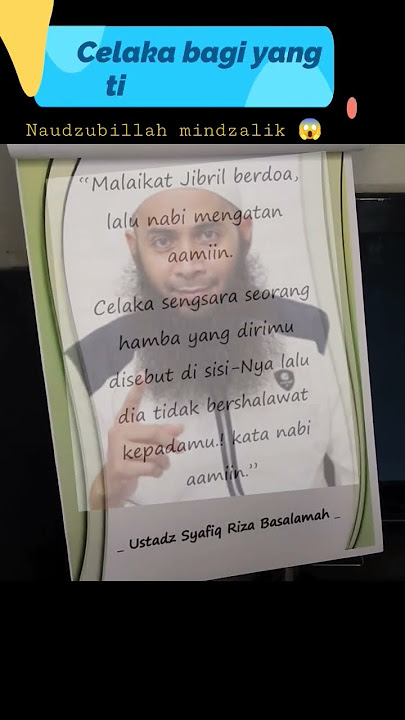 Celaka bagi yang
ti
Naudzubillah mindzalik 😱
“Malaikat Jibril berdoa,
lalu nabi mengatan
aamiin.
Celaka sengsara seorang
hamba yang dirimu
disebut di sisi-Nya lalu
dia tidak bershalawat
kepadamu.! kata nabi
aamiin.”
_ Ustadz Syafiq Riza Basalamah _